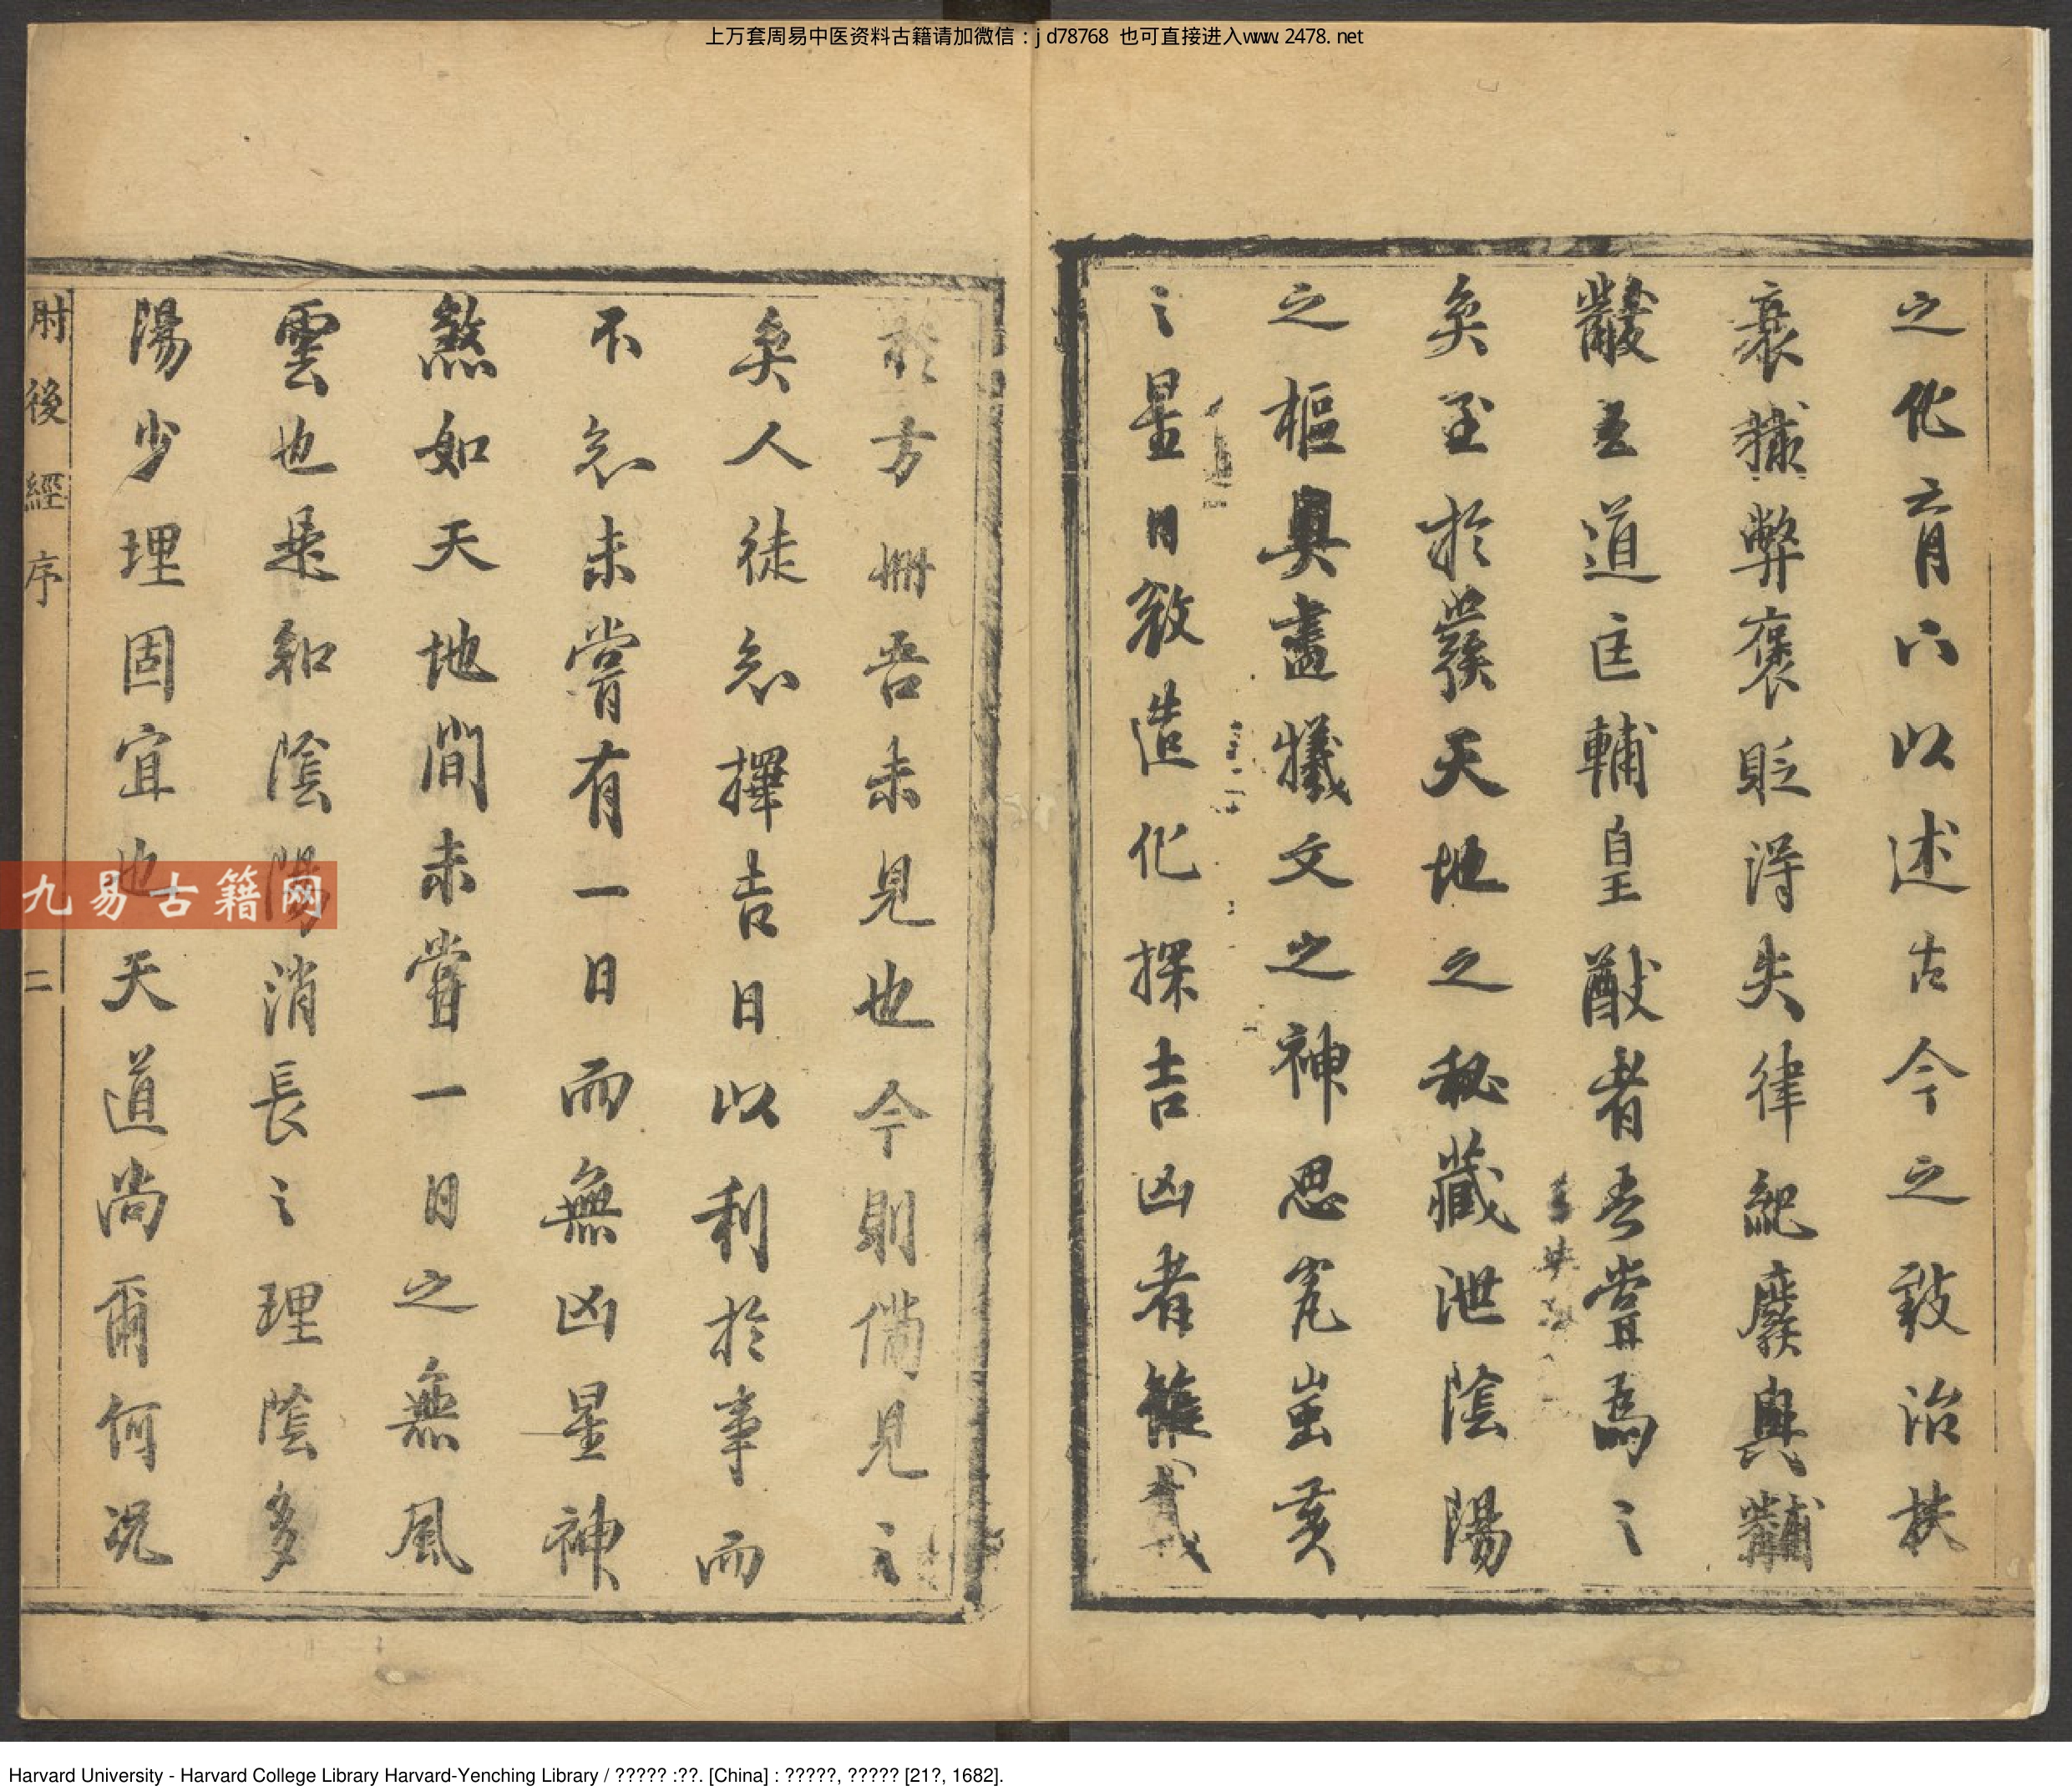 上万套周易中医资料古籍请加微信：jd78768 也可直接进入www.2478.net
之化育六以述古今之致治扶
衰撥弊褒貶得失律紀廢興黼
黻吾道匡輔皇猷者吾嘗爲之
矣至於發天地之秘藏泄陰陽
之樞奧畫犧文之神思窕蚩亥
之星日敘造化探吉凶者
於方冊吾未見也今則倘見之
矣人徒忽擇吉日以利於事而
不忽未嘗有一日而無凶星神
煞如天地間未嘗一日之無風
雲也是知陰陽消長之理陰多
陽少理固宜也天道尚爾何況
肘後經序
二
九易古籍网
Harvard University - Harvard College Library Harvard-Yenching Library / ????? :??. [China] : ?????, ????? [21?, 1682].